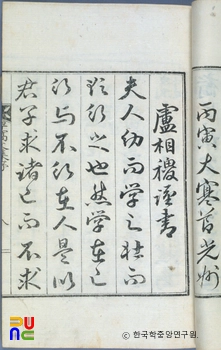 丙寅大寒光州
盧相稷謹書
夫人幼而學之壯而
欲行之也然學在己
行与不行在人是以
君子求諸己而不求
八
한국학중앙연구원